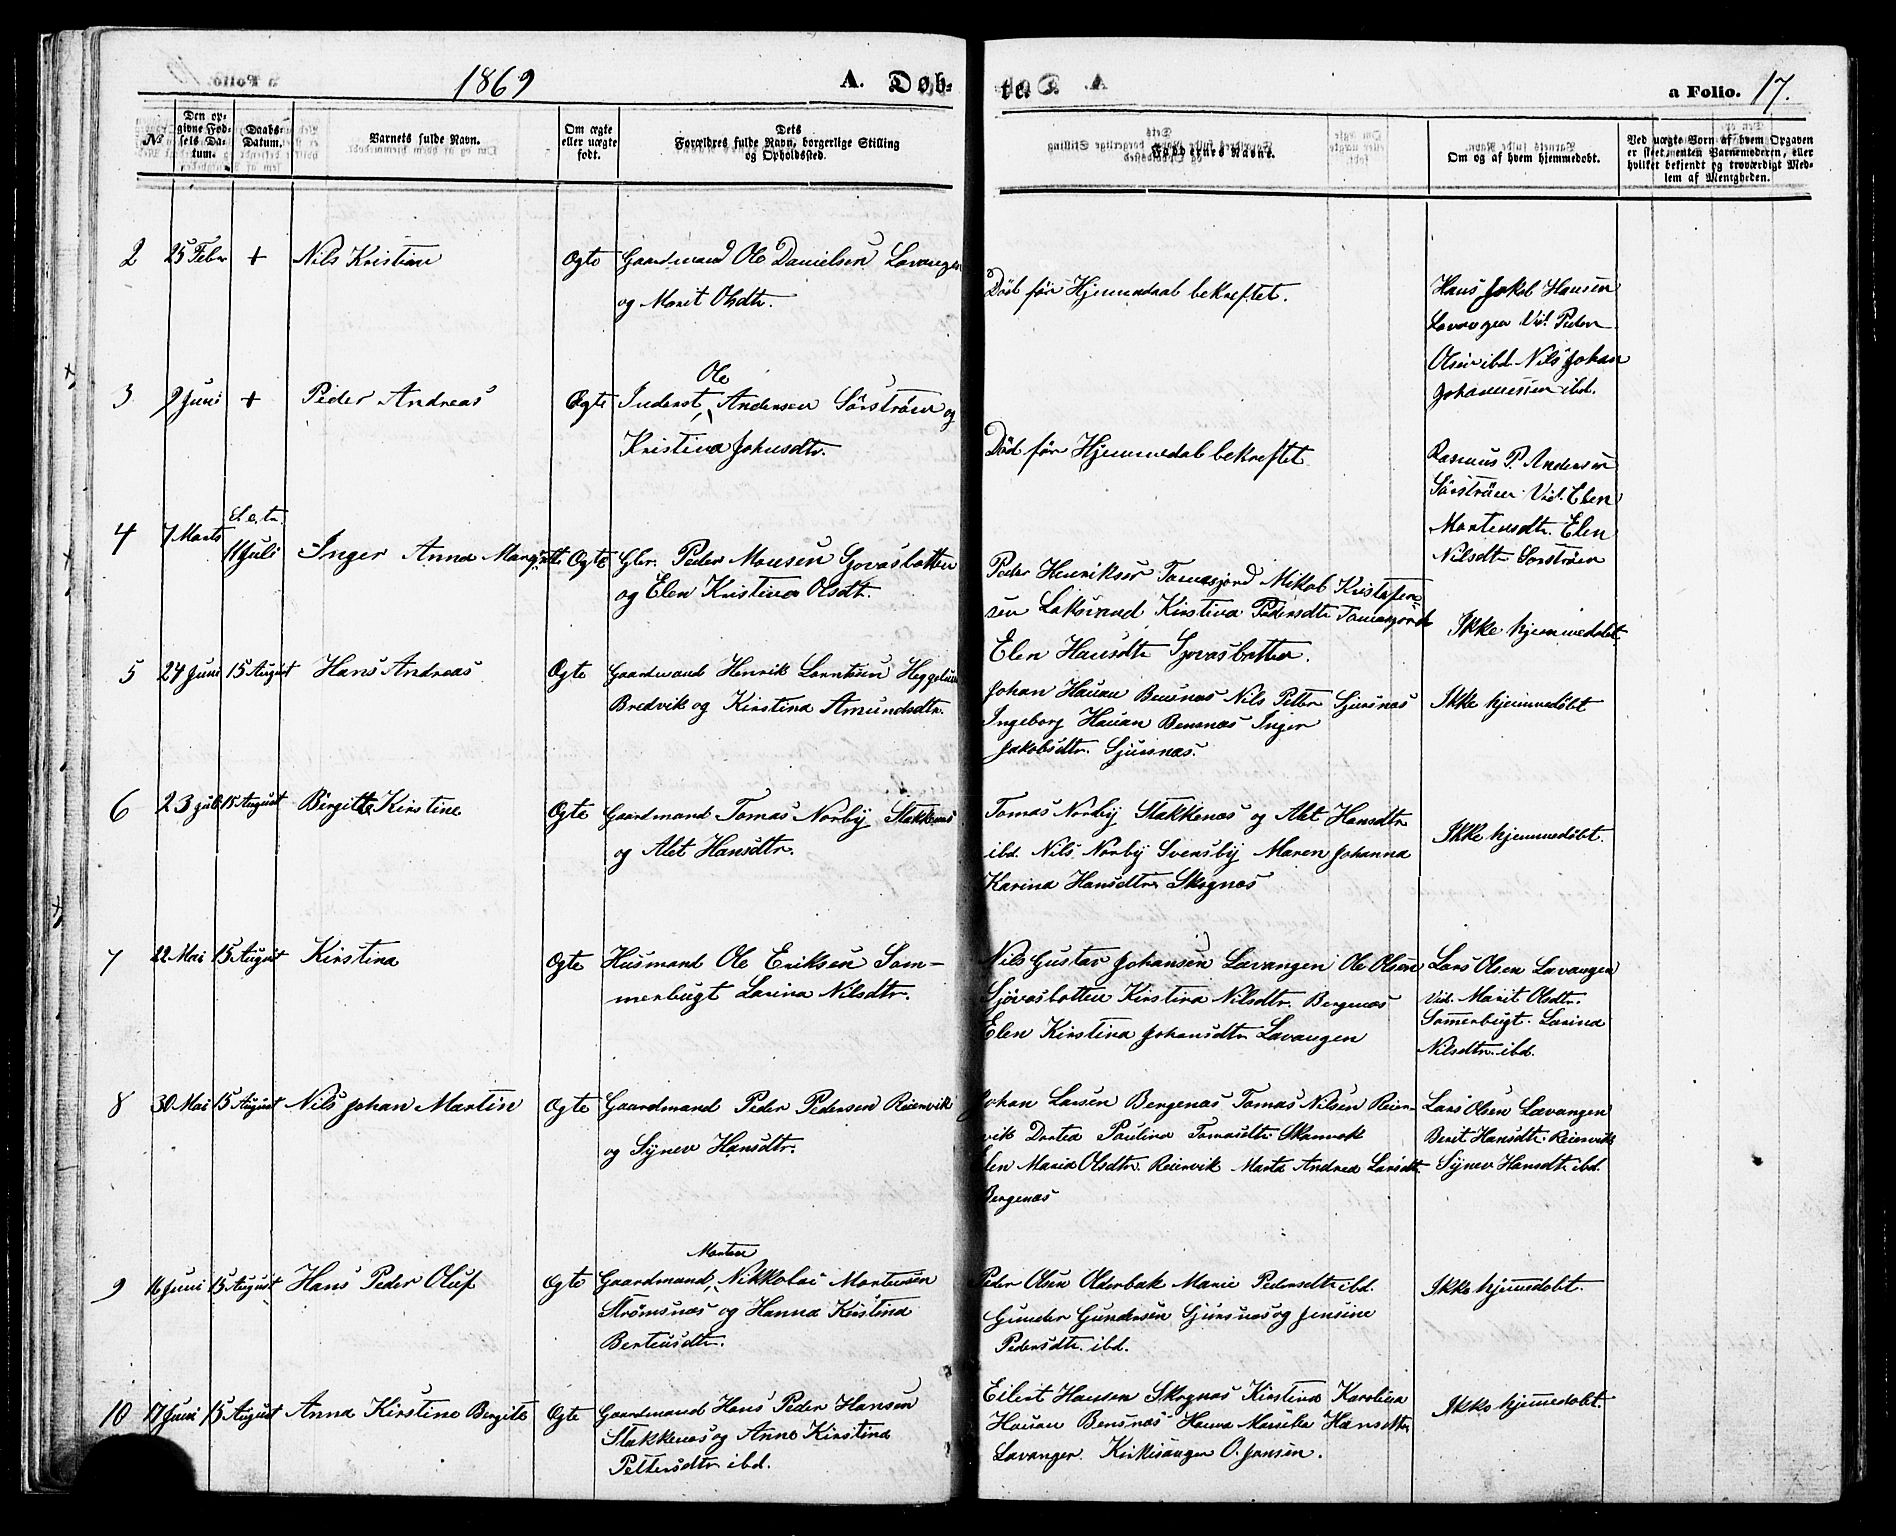 1869
A. Døb-
te.
a Folio. 17.
№
Den op-
givne Fød-
sels Da-
tum.
Daabs-
Datum.
Barnets fulde Navn.
Om ægte
eller uægte
født.
Dets
Forældres fulde Navn, borgerlige Stilling
og Opholdssted.
Faddernes Navne.
Om og af hvem hjemmedøbt.
Ved uægte Børn af hvem Opgaven
er skeet, enten Barnemoderen, eller
hvilket bekjendt og troværdigt Med-
lem af Menigheden.
2 25 Febr + Nils Kristian Ogte Gaardmand Ole Danielsen Lavangen
og Marit Olsdtr.
Død før Hjemmedaab bekræftet.
Hans Jakob Hansen
Lavangen Vid. Peder
Olsen ibd. Nils Johan
Johannessen ibd.
3 9 Juni + Peder Andreas Ogte Inderst Ole Andersen Sörström og
Kristina Johnsdtr.
Død før Hjemmedab bekreftet
Rasmus P. Andersen
Sörström Vid. Elen
Mortensdtr. Elen
Nilsdtr Sorström
4 7 Marts 11 Juli Inger Anna Margrette Ogte Gbr. Peder Monsen Sjovasbotten
og Elen Kristina Olsdt.
Peder Henriksen Tomasjord Mikal Kristofer-
sen Laksvand Kirstina Pedersdtr Tomasjord
Elen Hansdtr Sjovasbotten.
Ikke hjemmedøbt
5 24 Juni 15 August Hans Andreas Ogte Gaardmand Henrik Lorntsen Heggelund
Bredvik og Kirstina Amundsdtr.
Johan Hauan Bensnæs Nils Petter Sjursnæs
Ingeborg Hauan Bensnæs Inger
Jakobsdtr. Sjursnæs.
Ikke hjemmedøbt
6 23 Juli 15 August Birgitte Kirstine Ogte Gaardmand Tomas Norby Stakkenæs
og Alet Hansdtr.
Tomas Norby Stakkenæs og Alet Hansdtr
ibd. Nils Norby Svensby Maren Johanna
Karina Hansdtr Skognæs
Ikke hjemmedøbt.
7 22 Mai 15 August Kirstina Ogte Husmand Ole Eriksen Som-
merbugt Larina Nilsdtr.
Nils Gustav Johansen Lavangen Ole Olsen
Sjövasbotten Kirstina Nilsdtr. Bergenæs
Elen Kirstina Johansdtr Lavangen
Lars Olsen Lavangen
Vid. Marit Olsdtr.
Somerbugt. Larina
Nilsdtr. ibd.
8 30 Mai 15 August Nils Johan Martin Ogte Gaardmand Peder Pedersen Reiervik
og Synev Hansdtr.
Johan Larsen Bergenæs Tomas Nilsen Reier-
vik Dortea Paulina Tomasdtr
Elen Maria Olsdtr. Reiervik Marta Andrea Larsdtr
Bergenæs
Lars Olsen Lavangen
Berit Hansdtr. Reiervik
Synev Hansdtr. ibd.
9 16 Juni 15 August Hans Peder Oluf Ogte Gaardmand Morten Nikkolai Mortensen
Strømsnæs og Hanna Kirstina
Berteusdtr.
Peder Olsen Olderbak Marie Pedersdtr ibd.
Gunder Gundersen Sjursnæs og Jensine
Pedersdtr. ibd.
Ikke hjemedøbt.
10 17 Juni 15 August Anna Kirstine Bergite Ogte Gaardmand Hans Peder Hansen
Stakkenæs og Anne Kirstina
Pettersdtr ibd.
Eilert Hansen Skognæs Kirstina Karolina
Hauan Bensnæs Hanna Marike Hansdtr
Lavanger. Kirkesanger O. Jansen.
Ikke hjemmedøbt.